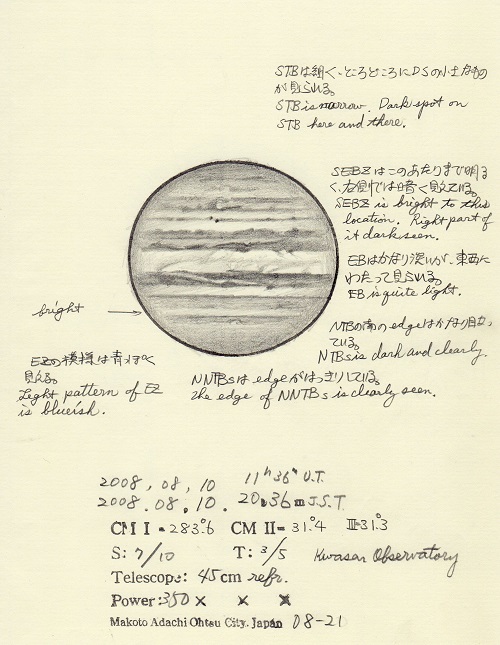 STBは細く、ところどころにDSの小さなもの
が見られる。
STB is narrow. Dark spot on
STB here and there.
SEBZはこのあたりまで明る
く、右側では暗く見えている。
SEBZ is bright to this
location. Right part of
it dark seen.
EBはかなり淡いが、東西に
わたって見られる。
EB is quite light.
NTBの南のedgeはかなり目立っ
ている。
NTBs is dark and clearly.
bright
EZの模様は青っぽく
見える。
Light pattern of EZ
is blueish.
NNTBsはedgeがはっきりしている。
the edge of NNTBs is clearly seen.
2008, 08, 10 11h 36m U.T.
2008. 08. 10. 20h 36m J.S.T
CM I = 283°.6 CM II= 31°.4 III=31°.3
S: 7/10 T: 3/5 Kwasan Observatory
Telescope: 45cm refr.
Power: 350 × × ×
Makoto Adachi Ohtsu City. Japan 08-21